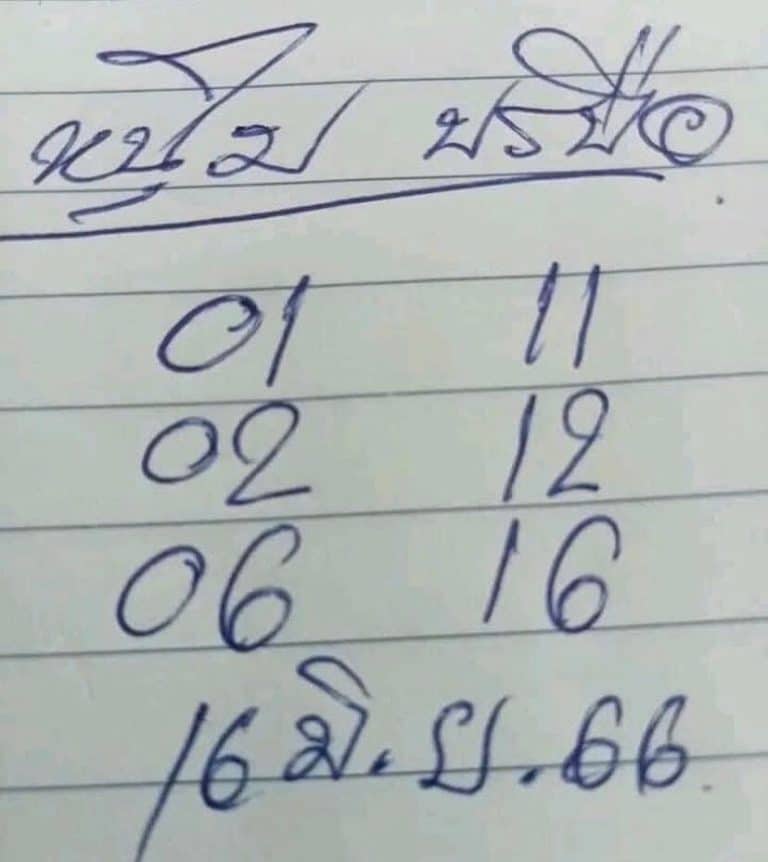 หนุ่ม บรบือ
01 11
02 12
06 16
16 มิ.ย.66